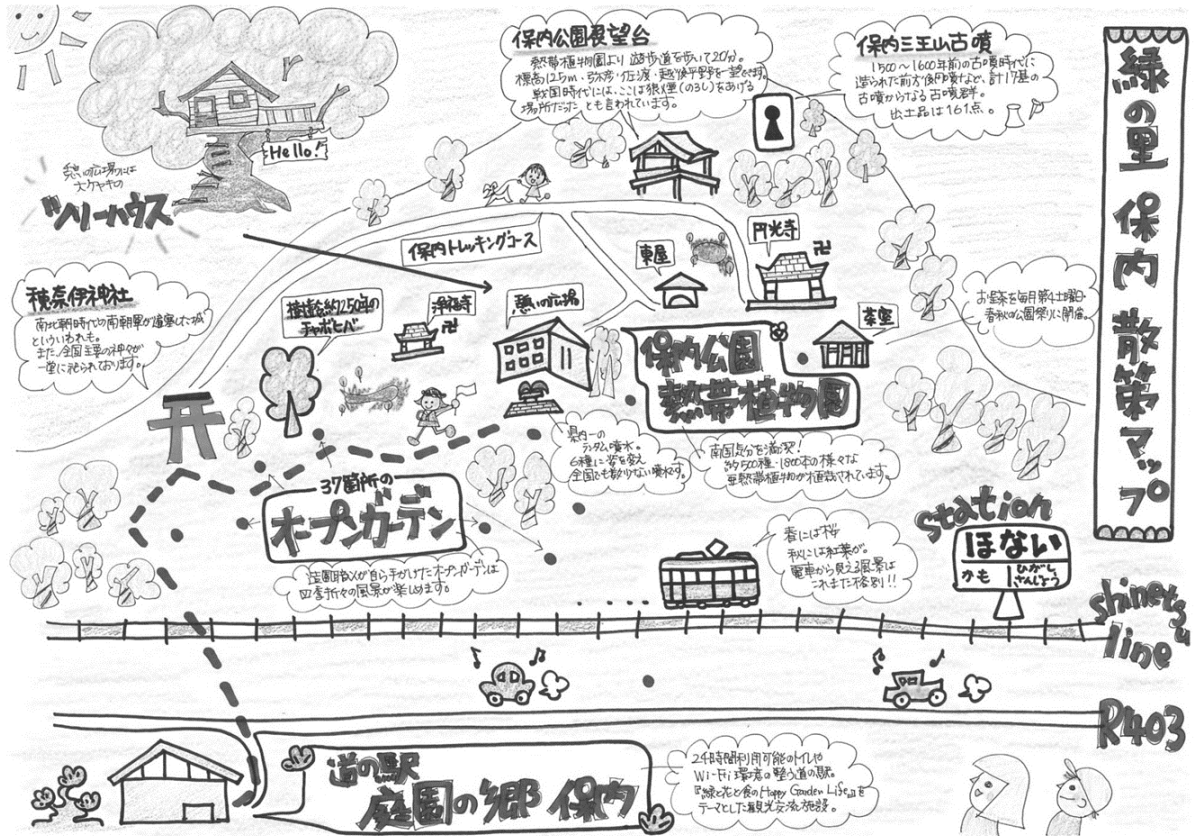 緑の里 保内 散策マップ
保内公園展望台
熱帯植物園より 遊歩道を歩いて20分。
標高125m・弥彦・佐渡・越後平野を一望できます。
戦国時代には、ここは狼煙(のろし)をあげる
場所だった、とも言われています。
保内三王山古墳
1500〜1600年前の古墳時代に
造られた前方後円墳など、計17基の
古墳からなる古墳群。
出土品は161点。
Hello!
憩いの広場には
大ケヤキの
ツリーハウス
保内トレッキングコース
東屋
円光寺
穂奈伊神社
南北朝時代の南朝軍が
といういわれも。
また、全国主要の神々が
一堂に祀られております。
樹齢約250年の
チャボヒバ
浄福寺
憩いの広場
茶室
お呈茶を毎月第4土曜日
春秋の公園祭りに開催。
保内公園
熱帯植物園
県内一の
ランダム噴水。
6種に姿を変え
全国でも数少ない噴水です。
南国気分を満喫!
約500種・1800本の様々な
亜熱帯植物が植栽されています。
37箇所の
オープンガーデン
造園職人が自ら手がけたオープンガーデンは
四季折々の風景が楽しめます。
春には桜
秋には紅葉が。
電車から見える風景は
これまた格別!!
station
ほない
かも
ひがし
さんじょう
shinetsu
line
R403
道の駅
庭園の郷 保内
24時間利用可能のトイレや
Wi-Fi環境の整う道の駅。
『緑と花と食のHappy Garden Life』を
テーマとした観光交流施設。